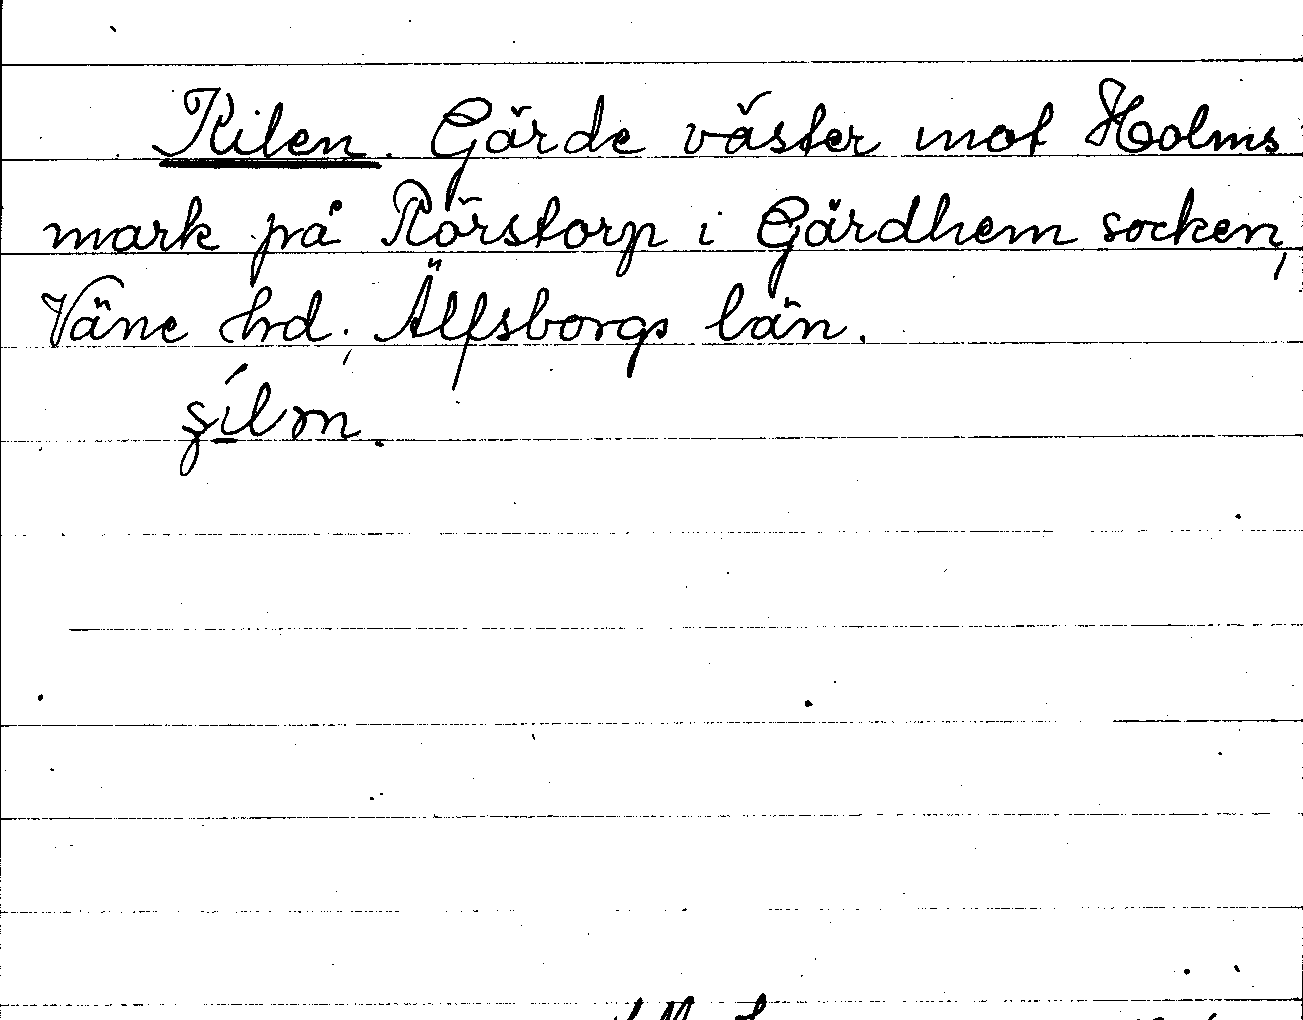 Kilen. Gärde väster mot Holms
mark på Rörstorp i Gärdhem socken,
Väne hd, Älfsborgs län.